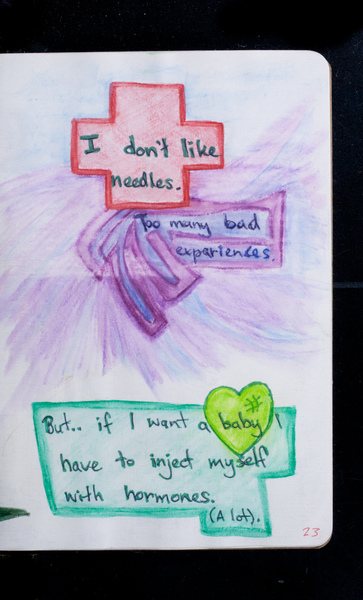 I don't like
needles.
Too many bad
experiences.
But.. if I want a baby I
have to inject myself
with hormones.
(A lot).
23